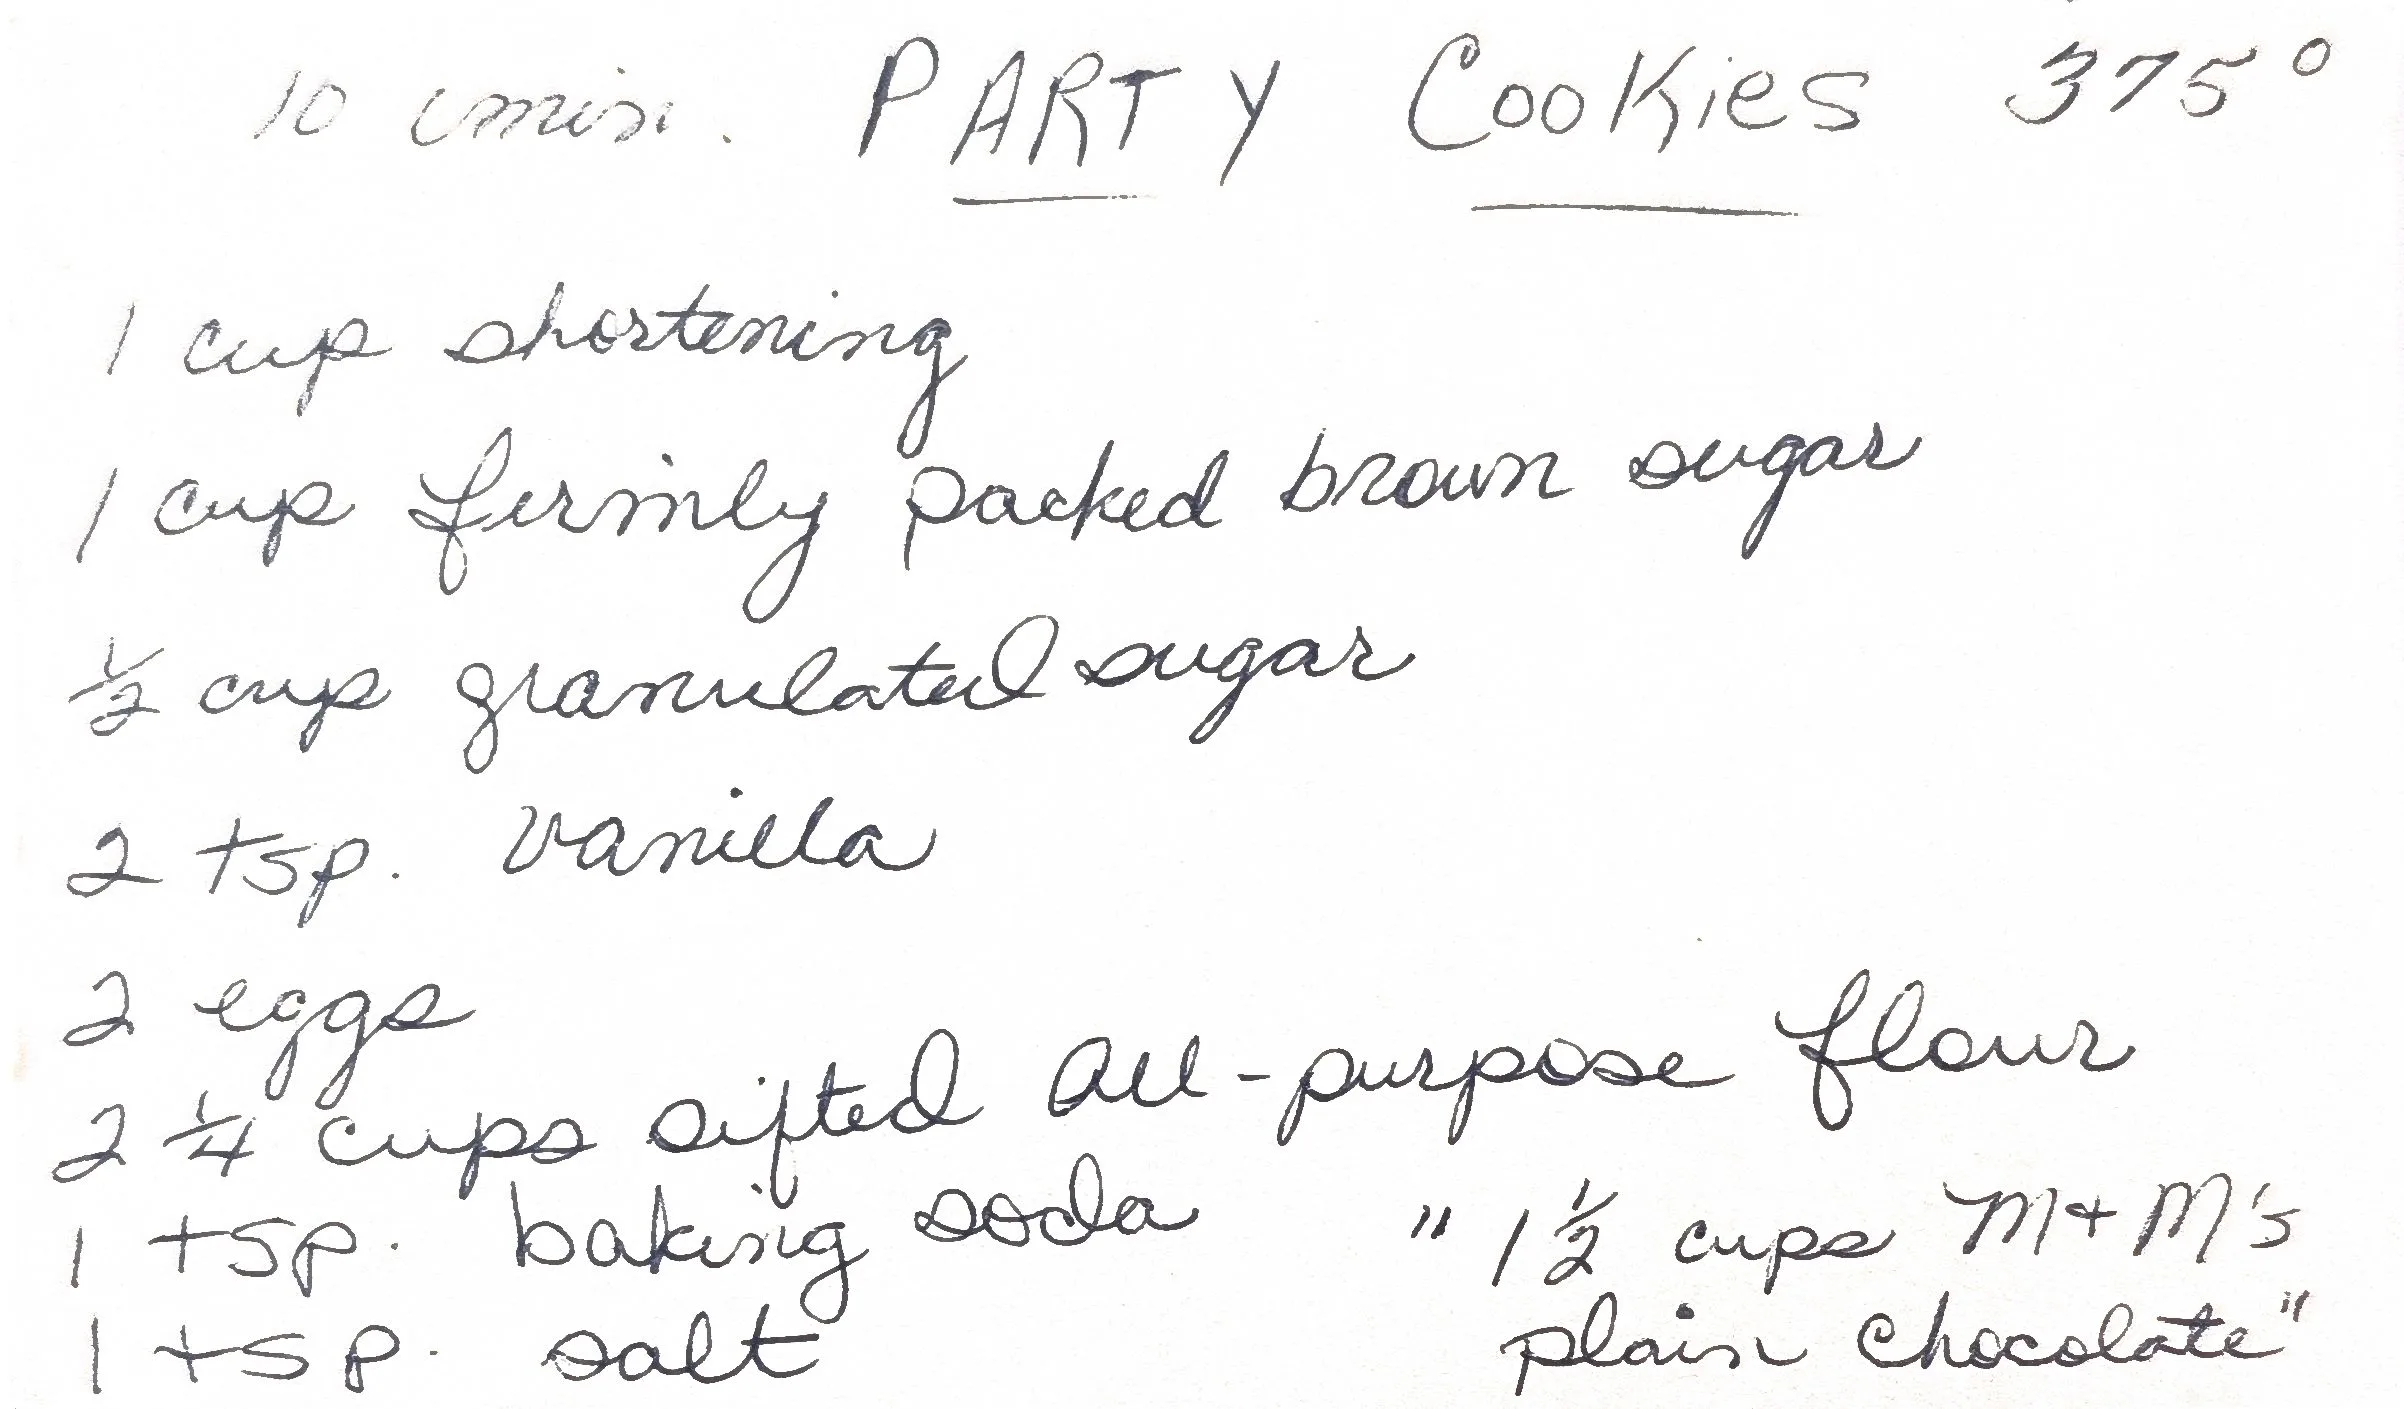 10 min. PARTY Cookies 375°
1 cup shortening
1 cup firmly packed brown sugar
½ cup granulated sugar
2 tsp. vanilla
2 eggs
2 ¼ cups sifted all-purpose flour
1 tsp. baking soda "1 ½ cups M+M's
1 tsp. salt plain chocolate"